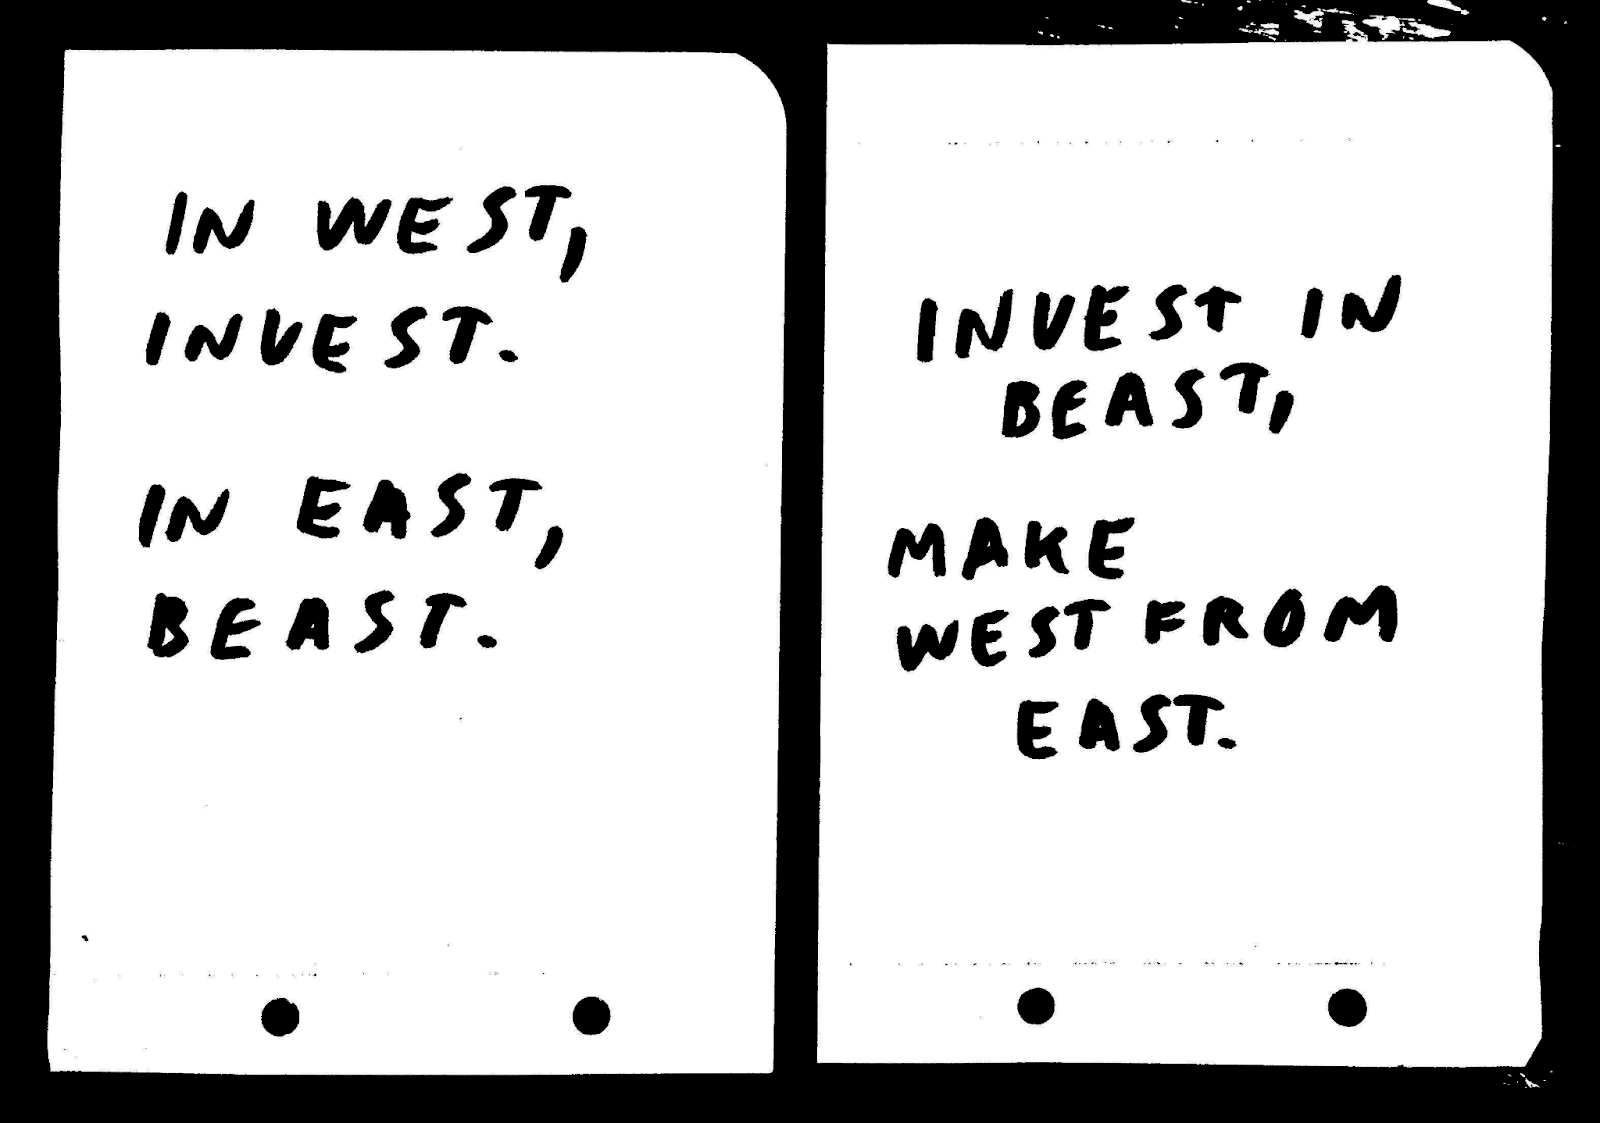 IN WEST,
INVEST.
IN EAST,
BEAST.
INVEST IN
BEAST,
MAKE
WEST FROM
EAST.